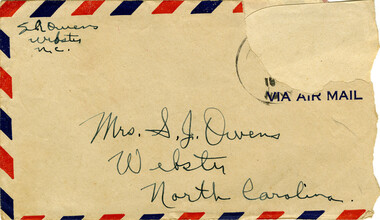 S.J. Owens
Webster
N.C.
16
VIA AIR MAIL
Mrs. S. J. Owens
Webster
North Carolina.